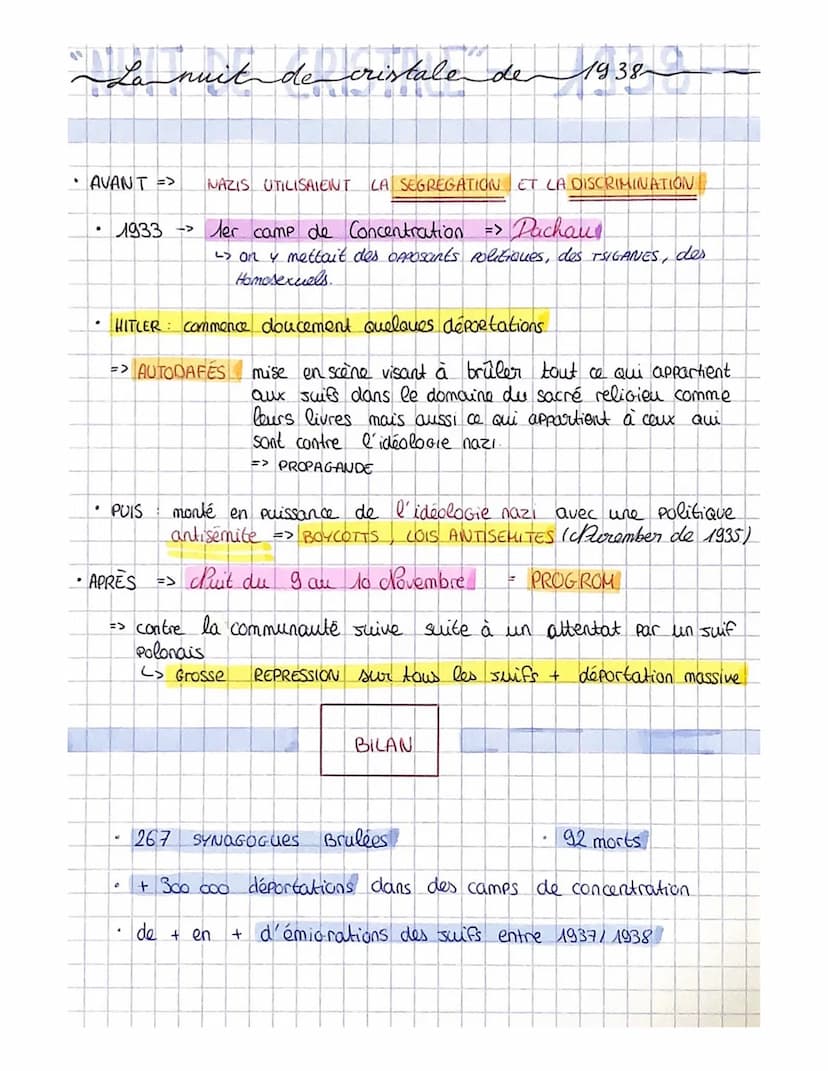 "NUIT DE CRISTALE" 1938
La nuit de cristale de 1938
• AVANT => NAZIS UTILISAIENT LA SEGREGATION ET LA DISCRIMINATION
• 1933 -> 1er camp de Concentration => Dachau
↳ on y mettait des opposants politiques, des TSIGANES, des
Homosexuels.
• HITLER : commence doucement quelques déportations
=> AUTODAFÉS mise en scène visant à brûler tout ce qui appartient
aux juifs dans le domaine du sacré religieu comme
leurs livres mais aussi ce qui appartient à ceux qui
sont contre l'idéologie nazi.
=> PROPAGANDE
• PUIS : monté en puissance de l'idéologie nazi avec une politique
antisémite => BOYCOTTS, LOIS ANTISEMITES (Nuremberg de 1935)
• APRÈS => Nuit du 9 au 10 Novembre = PROGROM
=> contre la communauté juive suite à un attentat par un juif
polonais
↳ Grosse REPRESSION sur tous les juifs + déportation massive
BILAN
• 267 SYNAGOGUES Brulées • 92 morts
• + 300 000 déportations dans des camps de concentration
• de + en + d'émigrations des juifs entre 1937/1938